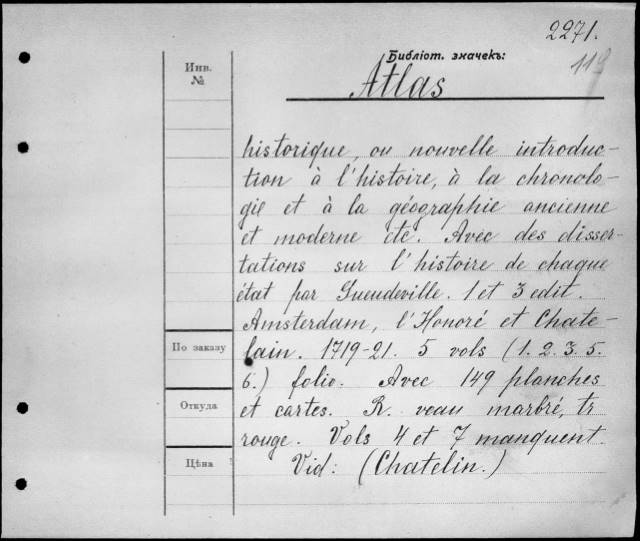 2271.
Инв.
№
Библіот. значекъ:
119
Atlas
historique, ou nouvelle introduc-
tion à l'histoire, à la chronolo-
gie et à la géographie ancienne
et moderne etc. Avec des disser-
tations sur l'histoire de chaque
état par Gueudeville. 1 et 3 edit.
Amsterdam, l'Honoré et Chate-
lain. 1719-21. 5 vols (1. 2. 3. 5.
6.) folio. Avec 149 planches
et cartes. R. veau marbré, tr
rouge. Vols 4 et 7 manquent.
Vid: (Chatelin.)
По заказу
Откуда
Цѣна